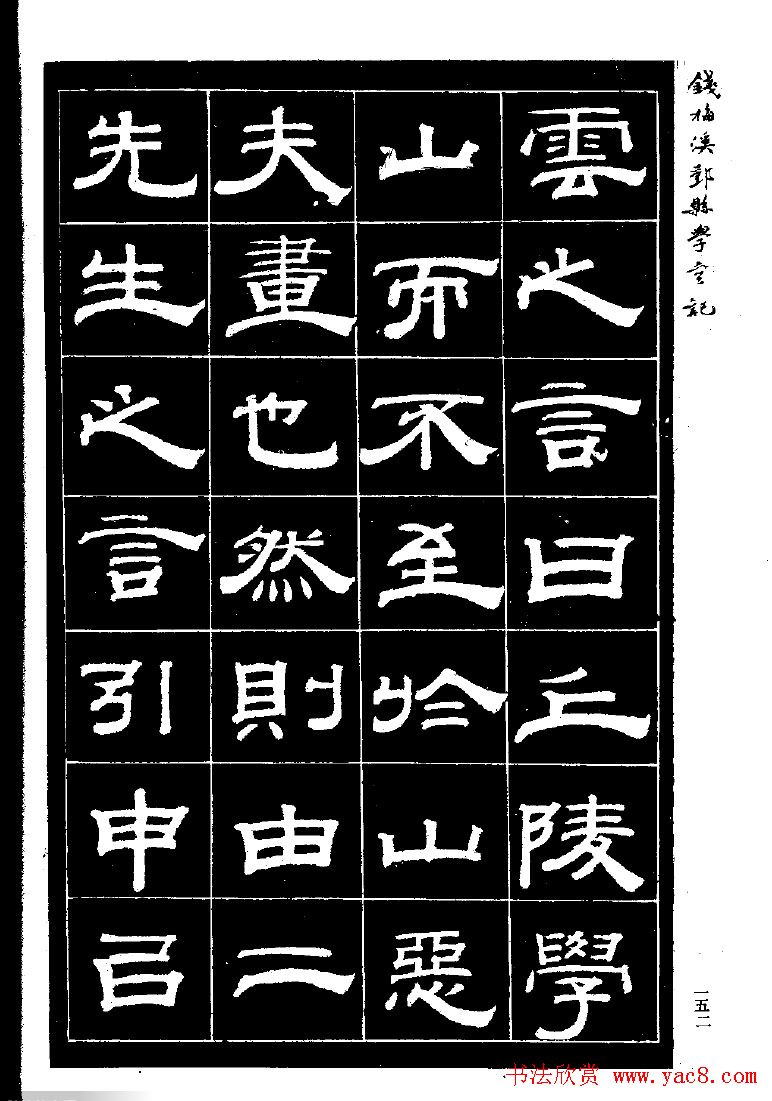 錢梅溪鄞縣學記
雲之言曰丘陵學
山而不至於山惡
夫畫也然則由二
先生之言引申㠯
一五二
书法欣赏 www.yac8.com